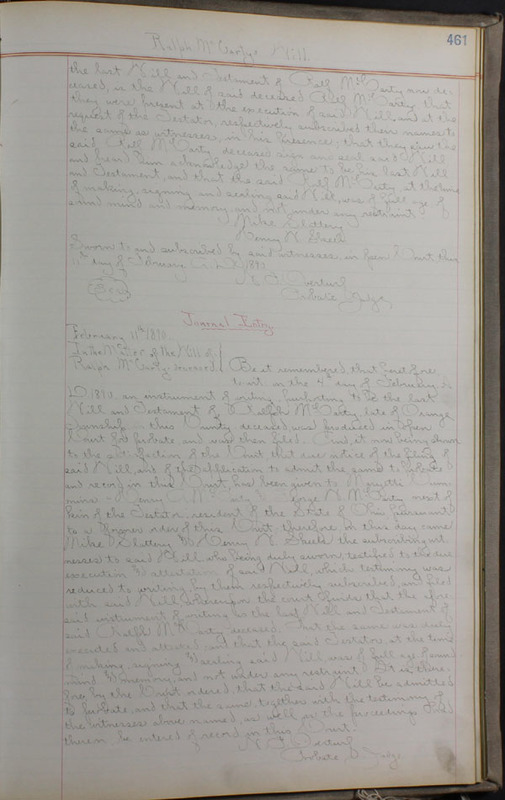 461
Ralph McCarty's Will.
the last Will and Testament of Ralf McCarty now de-
ceased, is the Will of said deceased Ralf McCarty that
they were present at the execution of said Will, and at the
request of the Testator, respectively subscribed their names to
the same as witnesses, in his presence; that they saw the
said Ralf McCarty, deceased sign and seal said Will
and heard him acknowledge the same to be his last Will
and Testament, and that the said Ralf McCarty, at the time
of making, signing and sealing said Will, was of full age, of
sound mind and memory, and not under any restraint.
Mike Slattery
Henry N. Sheets
Sworn to and subscribed by said witnesses, in open Court this
11th day of February A.D. 1890.
Probate Judge,
Seal
Journal Entry
February 11th 1890.
In the Matter of the Will of
Ralph McCarty deceased
Be it remembered, that heretofore
to wit, on the 4th day of February A.
D. 1890, an instrument of writing, purporting to be the last
Will and Testament of Ralph McCarty, late of Orange
Township in this County deceased, was produced in open
Court for probate, and was then filed. And, it now being shown
to the satisfaction of the Court that due notice of the filing of
said Will, and of the application to admit the same to probate
and record in this Court, has been given to
Henry C. McCarty George N. McCarty next of
kin of the Testator, resident of the State of Ohio pursuant
to a former order of this Court, therefore on this day came
Mike Slattery & Henry N. Sheets the subscribing wit-
nesses to said Will, who being duly sworn, testified to the due
execution & attestation of said Will, which testimony was
reduced to writing, by them respectively subscribed, and filed
with said Will. Whereupon the court finds that the afore-
said instrument of writing is the last Will and Testament of
said Ralf McCarty, deceased. That the same was duly
executed and attested and that the said Testator, at the time
of making, signing & sealing said Will, was of full age, of sound
mind & memory, and not under any restraint. It is there-
fore, by the Court ordered, that the said Will be admitted
to probate, and that the same, together with the testimony of
the witnesses above named, as well as the proceedings had
therein be entered of record in this Court.
Probate Judge